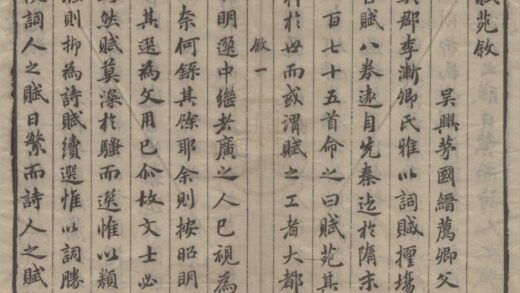 賦苑敘
吳興茅國縉薦卿父
郡李漸卿氏雅以詞賦擅場
賦八券遠自先秦迄於隋末
百七十五首命之曰賦苑其
於世而或謂賦之工者大都
敘一
明選中繼者廣之人已視為
奈何錄其餘耶余則按昭明
其選為文用已爾故文士必
然賦莫深於騷而選惟以類
則抑為詩賦續選惟以詞勝
詞人之賦日繁而詩人之賦